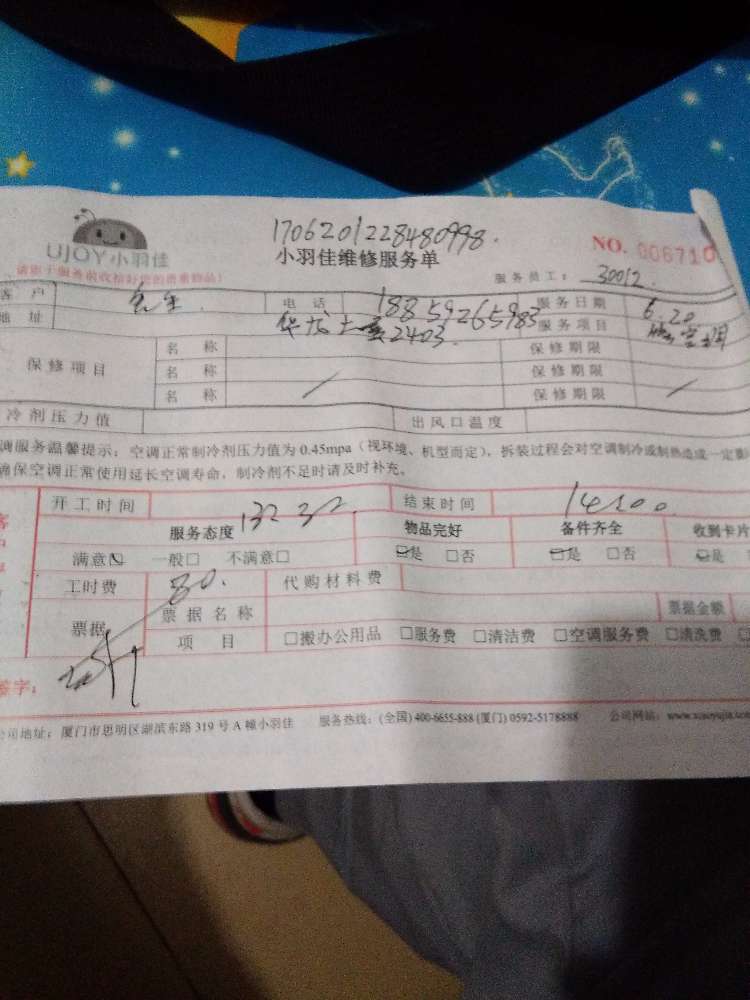 170620122848099​8.
UJOY小羽佳
小羽佳维修服务单
NO. 006710
请原于服务前收拾好您的贵重物品!
服务员工: 30012
客 户
电 话 18859265983
服务日期 6.20
地 址 2403.
服务项目
保修项目
名 称
保修期限
名 称
保修期限
名 称 /
保修期限 /
冷剂压力值
出风口温度
调服务温馨提示:空调正常制冷剂压力值为 0.45mpa(视环境、机型而定),拆装过程会对空调制冷或制热造成一定
确保空调正常使用延长空调寿命,制冷剂不足时请及时补充。
开工时间
结束时间 14:00
服务态度
物品完好
备件齐全
收到卡片
满意☑ 一般□ 不满意□
☑是 □否
☑是 □否
☑是
工时费 80.
代购材料费
票据
票 据 名 称
票据金额
项 目
□搬办公用品 □服务费 □清洁费 □空调服务费 □清洗费
签字:
公司地址:厦门市思明区湖滨东路 319 号 A 幢小羽佳 服务热线:(全国) 400-6655-888 (厦门) 0592-5178888 公司网站:www.xiaoyujia.com